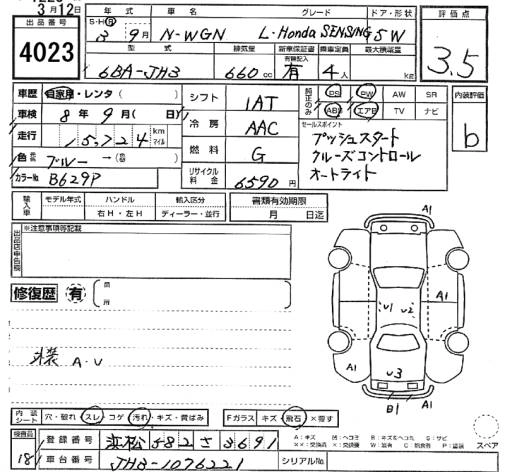 3月12日
出品番号
4023
年式 車名 グレード ドア・形状
S・H・R 3年9月 N-WGN L・Honda SENSING 5W
型式 排気量 新車保証書 乗車定員 最大積載量
有償記入
6BA-JH3 660cc 有 4人 kg
評価点
3.5
車歴 自家用・レンタ( )
車検 8年9月(日)
走行 15,724 km マイル
色 ブルー→( )
カラーNo B629P
シフト 1AT
冷房 AAC
燃料 G
リサイクル料金 6590円
純正のみ
PS PW AW SR
ABS エアB TV ナビ
セールスポイント
プッシュスタート
クルーズコントロール
オートライト
内装評価
b
輸入車 モデル年式 ハンドル 輸入区分
年 右H・左H ディーラー・並行
書類有効期限
月 日迄
出品店申告欄
※注意事項等記載
修復歴 有 箇所
外装 A・U
A1
A1
A1
A1
U1 U2
U3
B1
内装シート 穴・破れ スレ コゲ 汚れ・キズ・黄ばみ
Fガラス キズ 飛石 ×要す
検査員
18
登録番号 浜松 582 さ 3691
車台番号 JH3-1076221
シリアルNo
A:キズ U:ヘコミ B:キズをヘコみ S:サビ
スペア